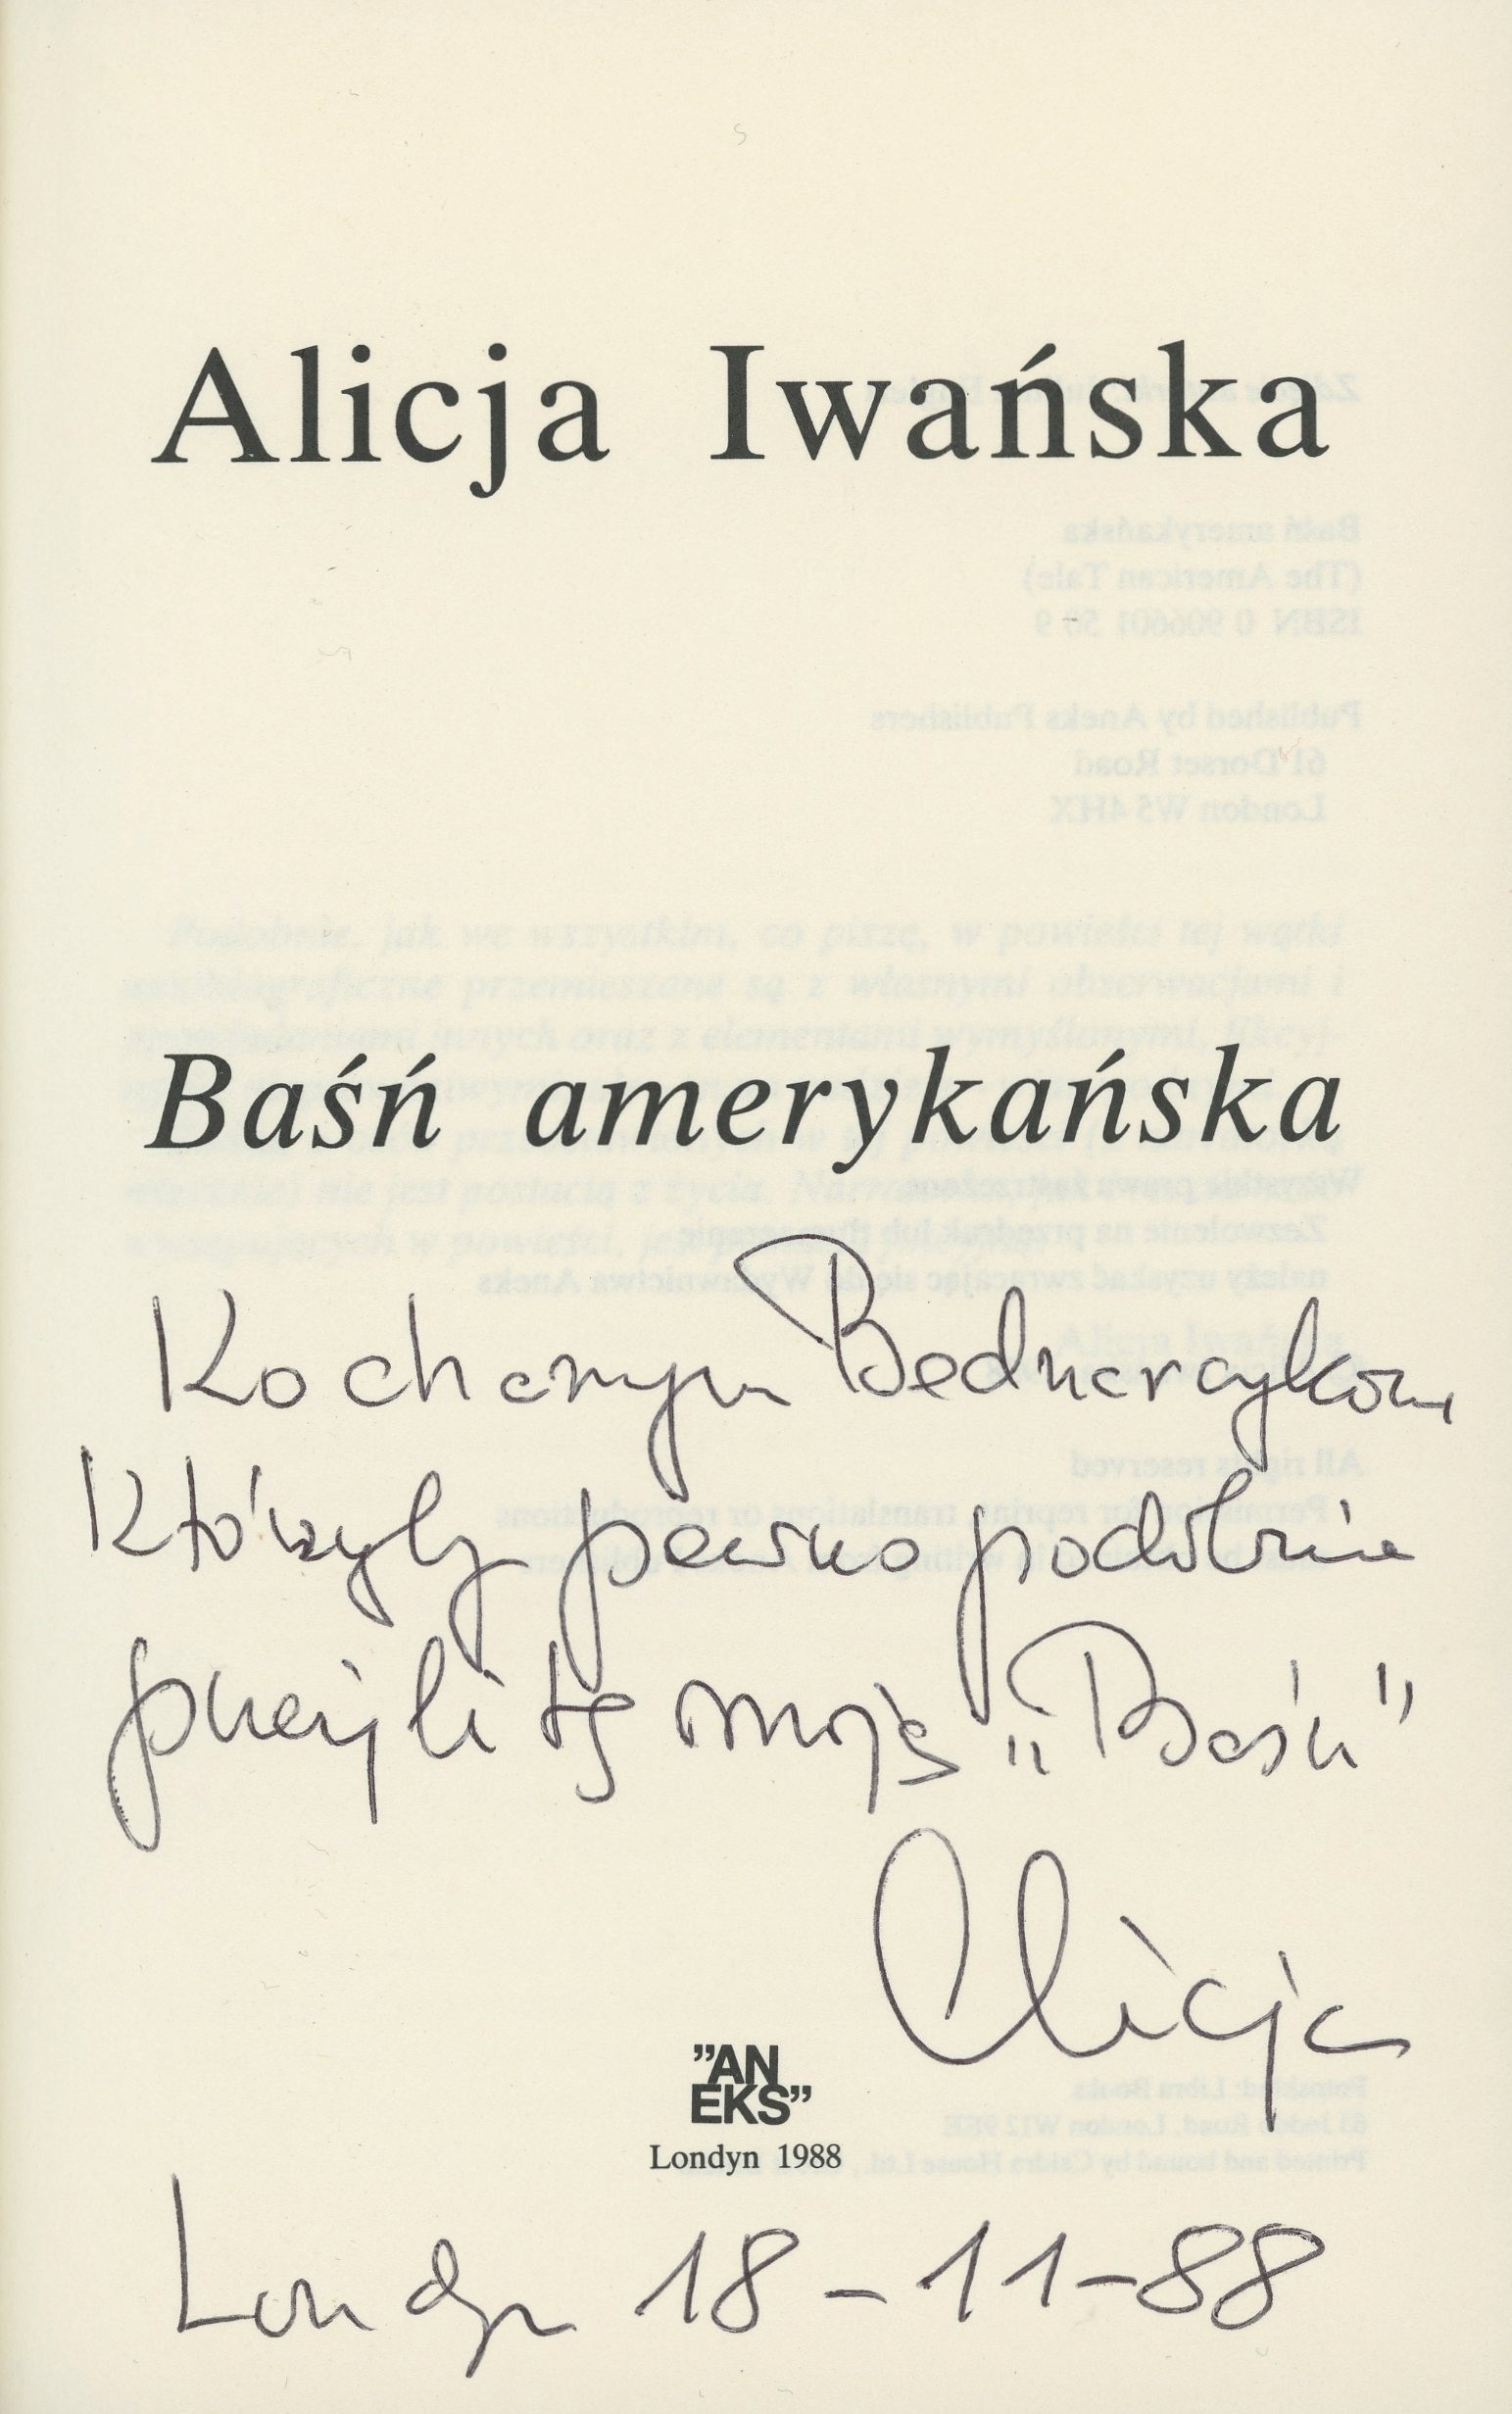 Alicja Iwańska
Baśń amerykańska
Kochanym Bednarczykom
Którzyby pewno podobnie
przeżyli tę moją „Baśń”
Alicja
”AN
EKS”
Londyn 1988
Londyn 18-11-88